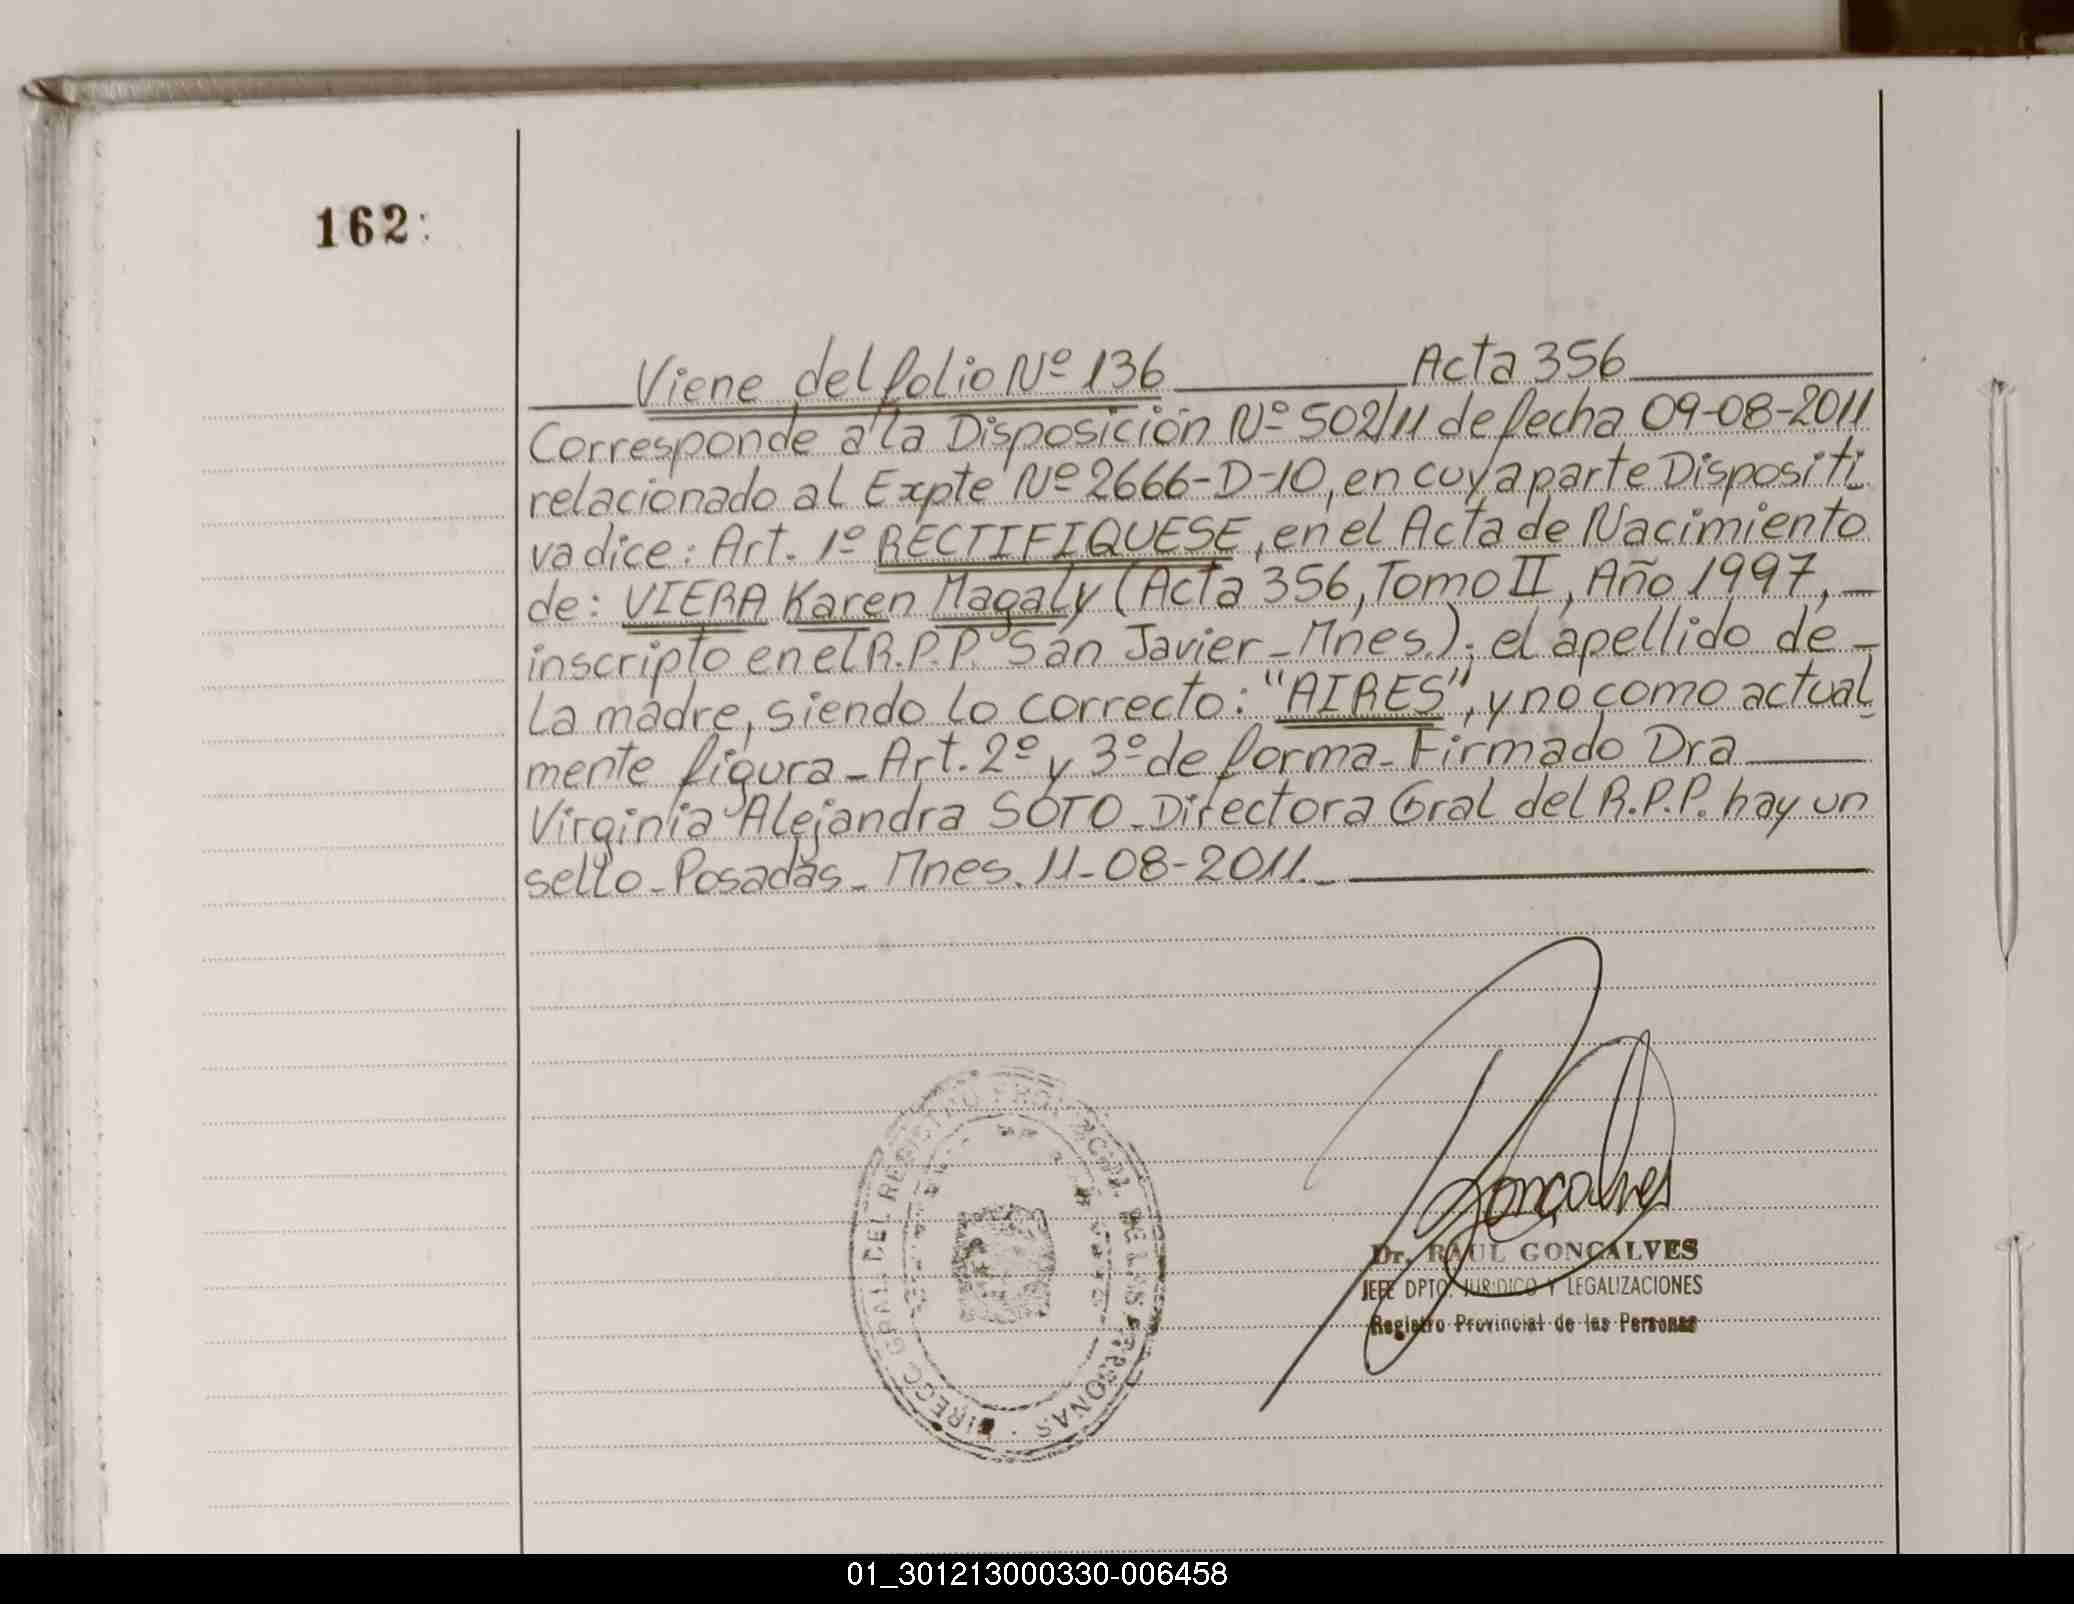 162:
Viene del folio Nº 136 Acta 356
Corresponde a la Disposición Nº 502/11 de fecha 09-08-2011
relacionado al Expte Nº 2666-D-10, en cuya parte Dispositi
va dice: Art. 1º RECTIFIQUESE, en el Acta de Nacimiento
de: VIERA Karen Magaly (Acta 356, Tomo II, Año 1997, _
inscripto en el R.P.P. San Javier_Mnes.); el apellido de _
la madre, siendo lo correcto: "AIRES", y no como actual
mente figura_Art. 2º y 3º de forma_Firmado Dra
Virginia Alejandra SOTO_Directora Gral del R.P.P. hay un
sello_Posadas_Mnes. 11-08-2011._
DIRECC. GRAL. DEL REGISTRO PROVINCIAL DE LAS PERSONAS
Goncalves
Dr. RAUL GONCALVES
JEFE DPTO. JURIDICO Y LEGALIZACIONES
Registro Provincial de las Personas
01_301213000330-006458